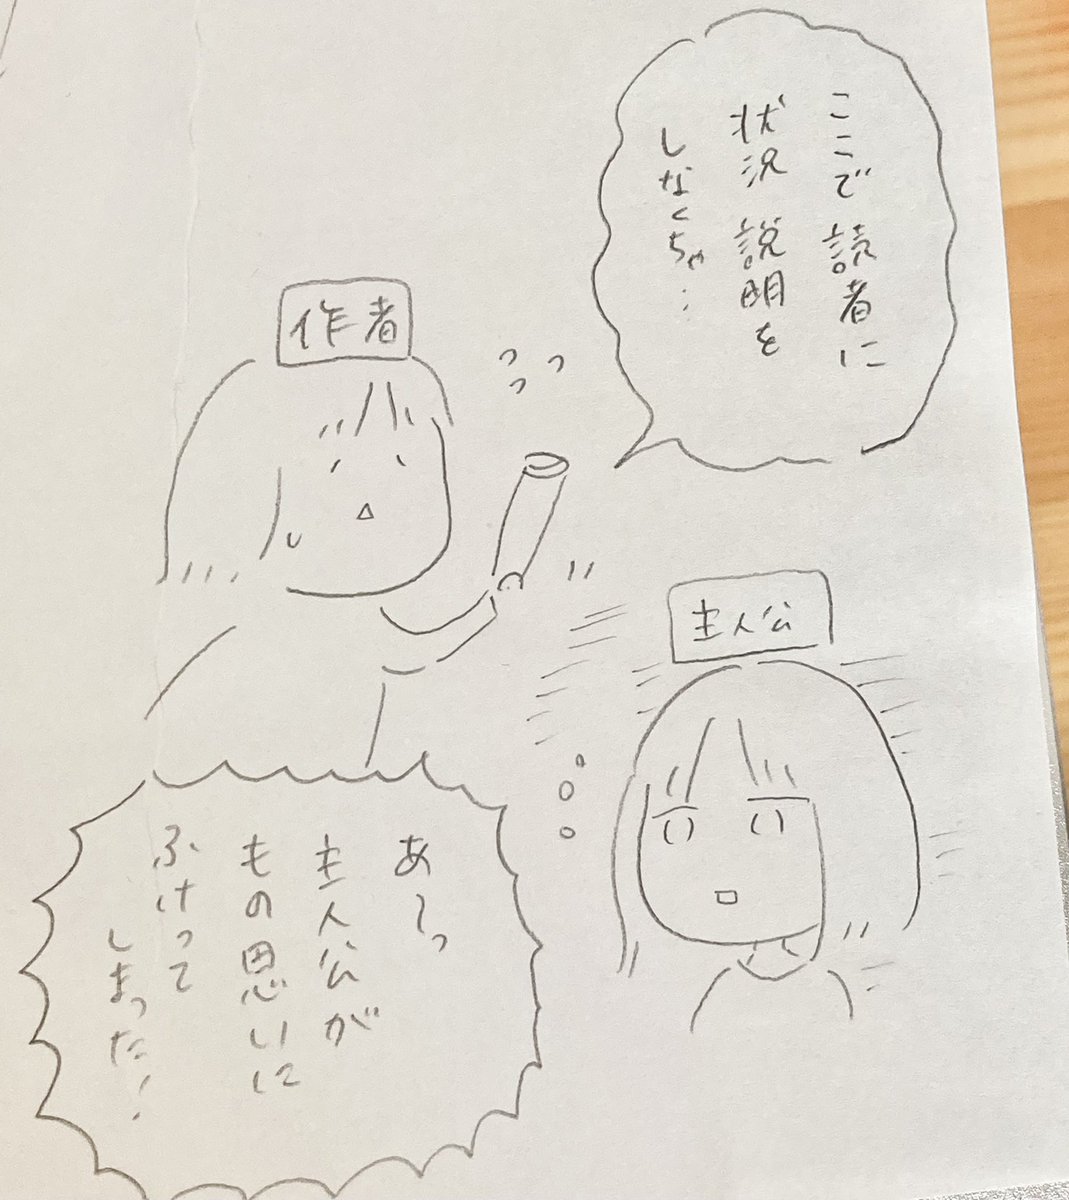 ここで読者に
状況説明を
しなくちゃ…
作者
主人公
あ〜っ
主人公が
もの思いに
ふけって
しまった！